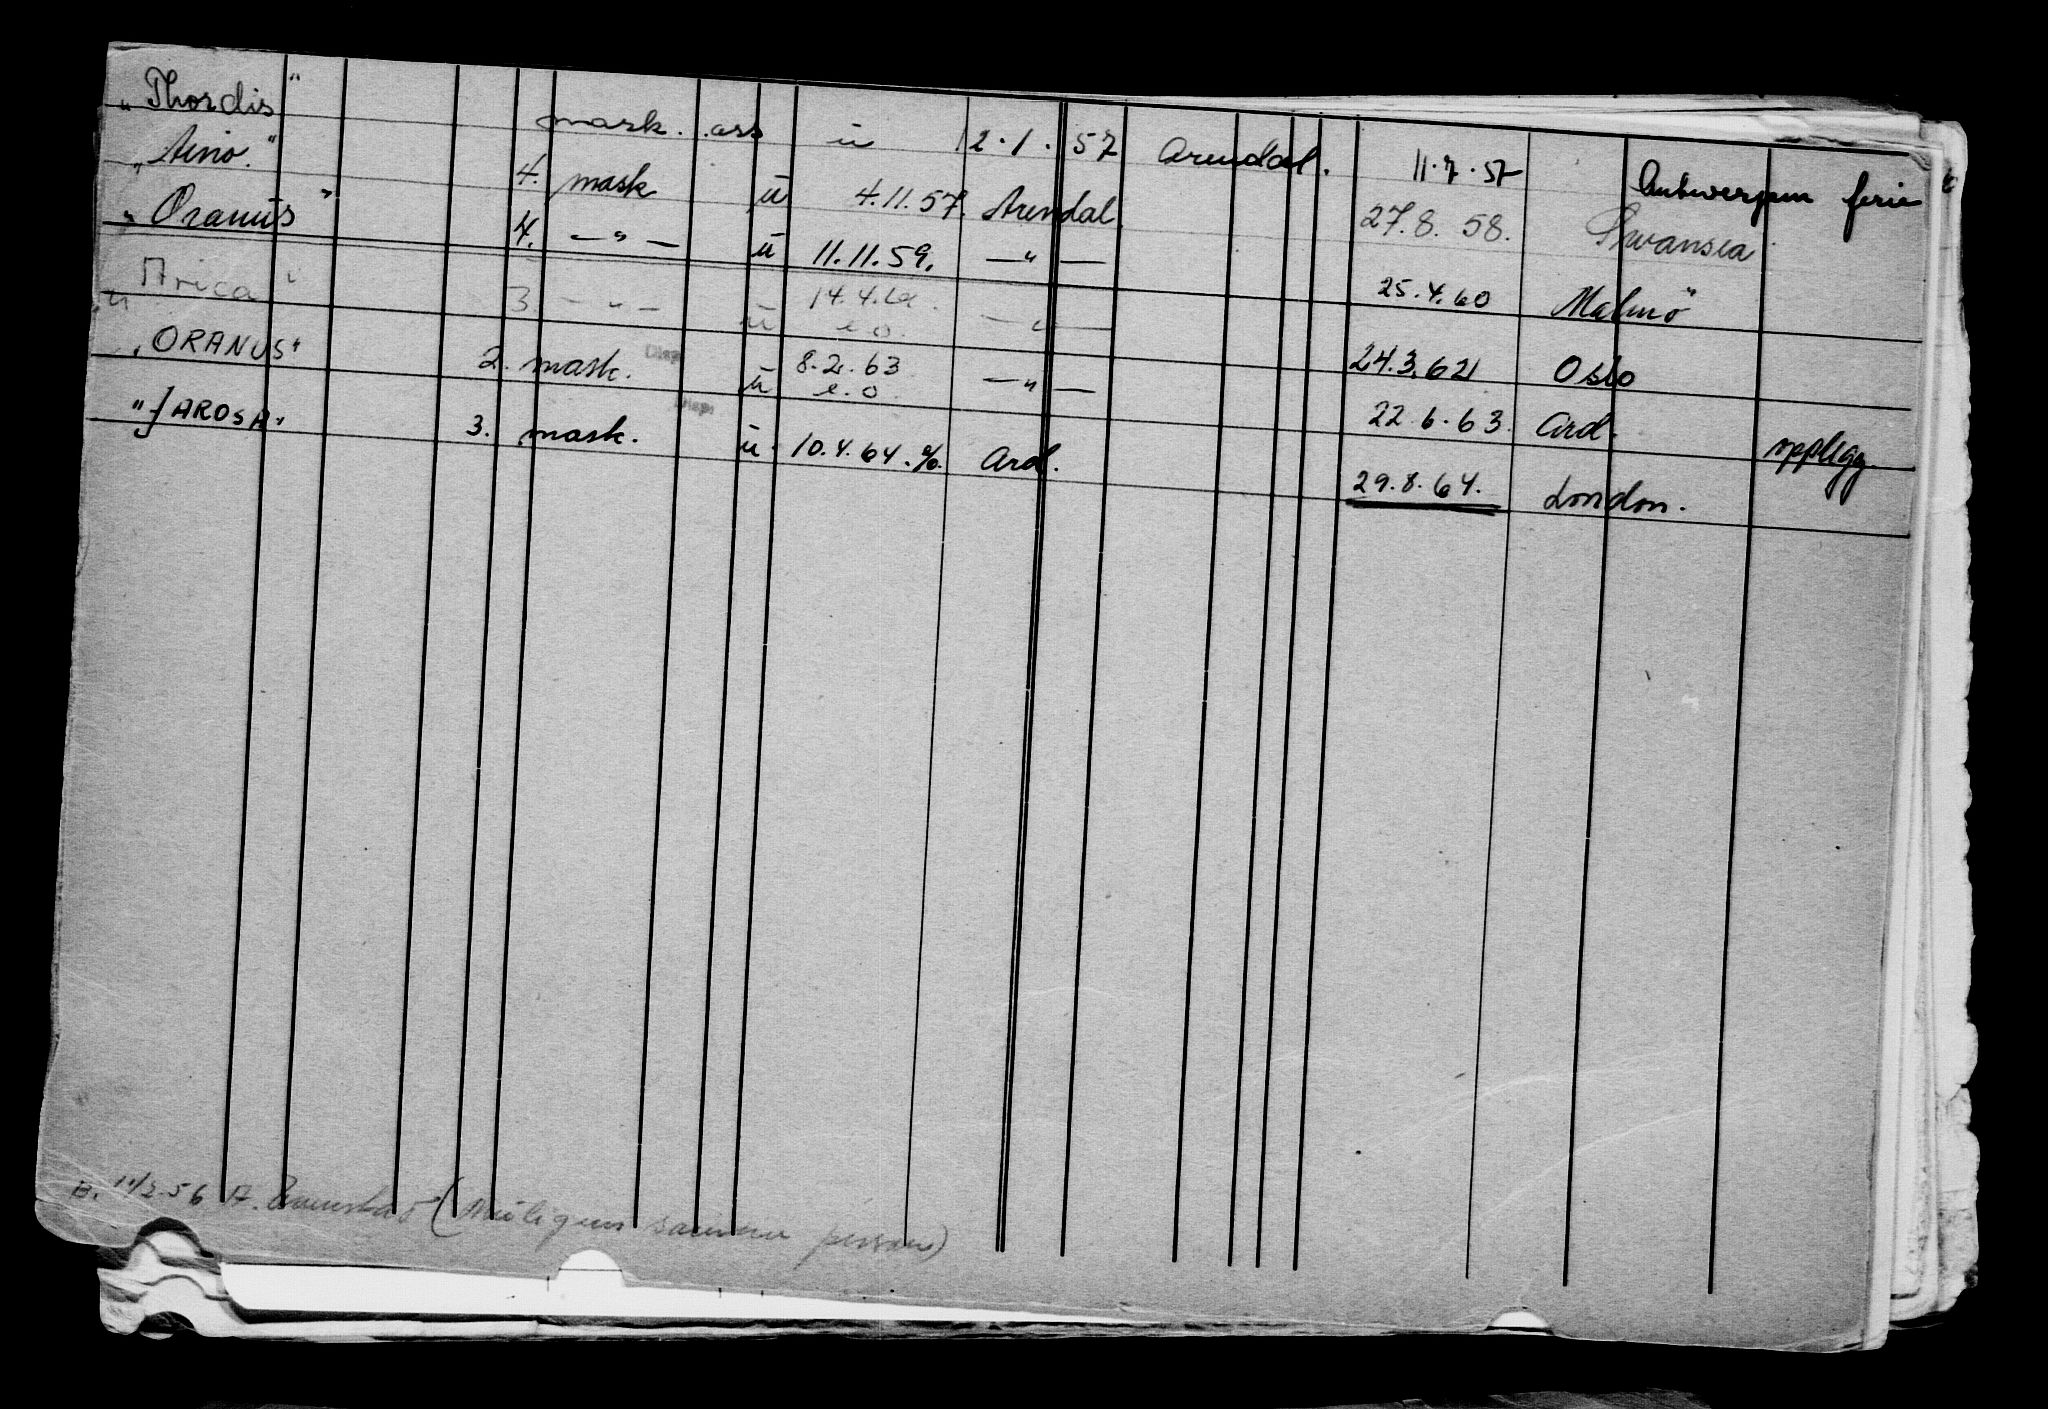 „Thordis" mask. ass u 12.1.57 Arendal. 11.7.57 Antwerpen ferie
„Aino." 4. mask u 4.11.57. Arendal. 27.8.58. Swansea
„Oranus" 4. —"— u 11.11.59. —"— 25.4.60 Malmö
„Arica" 3. —"— u 14.4. e.o. —"— 24.3.62 Oslo
„ORANUS" 2. mask. Disp. u 8.2.63 e.o. —"— 22.6.63. Ard. opplegg.
"JAROSA" 3. mask. Disp. u. 10.4.64. %. Ard. 29.8.64. London.
B. 11/2.56 A. (Muligens samme person)